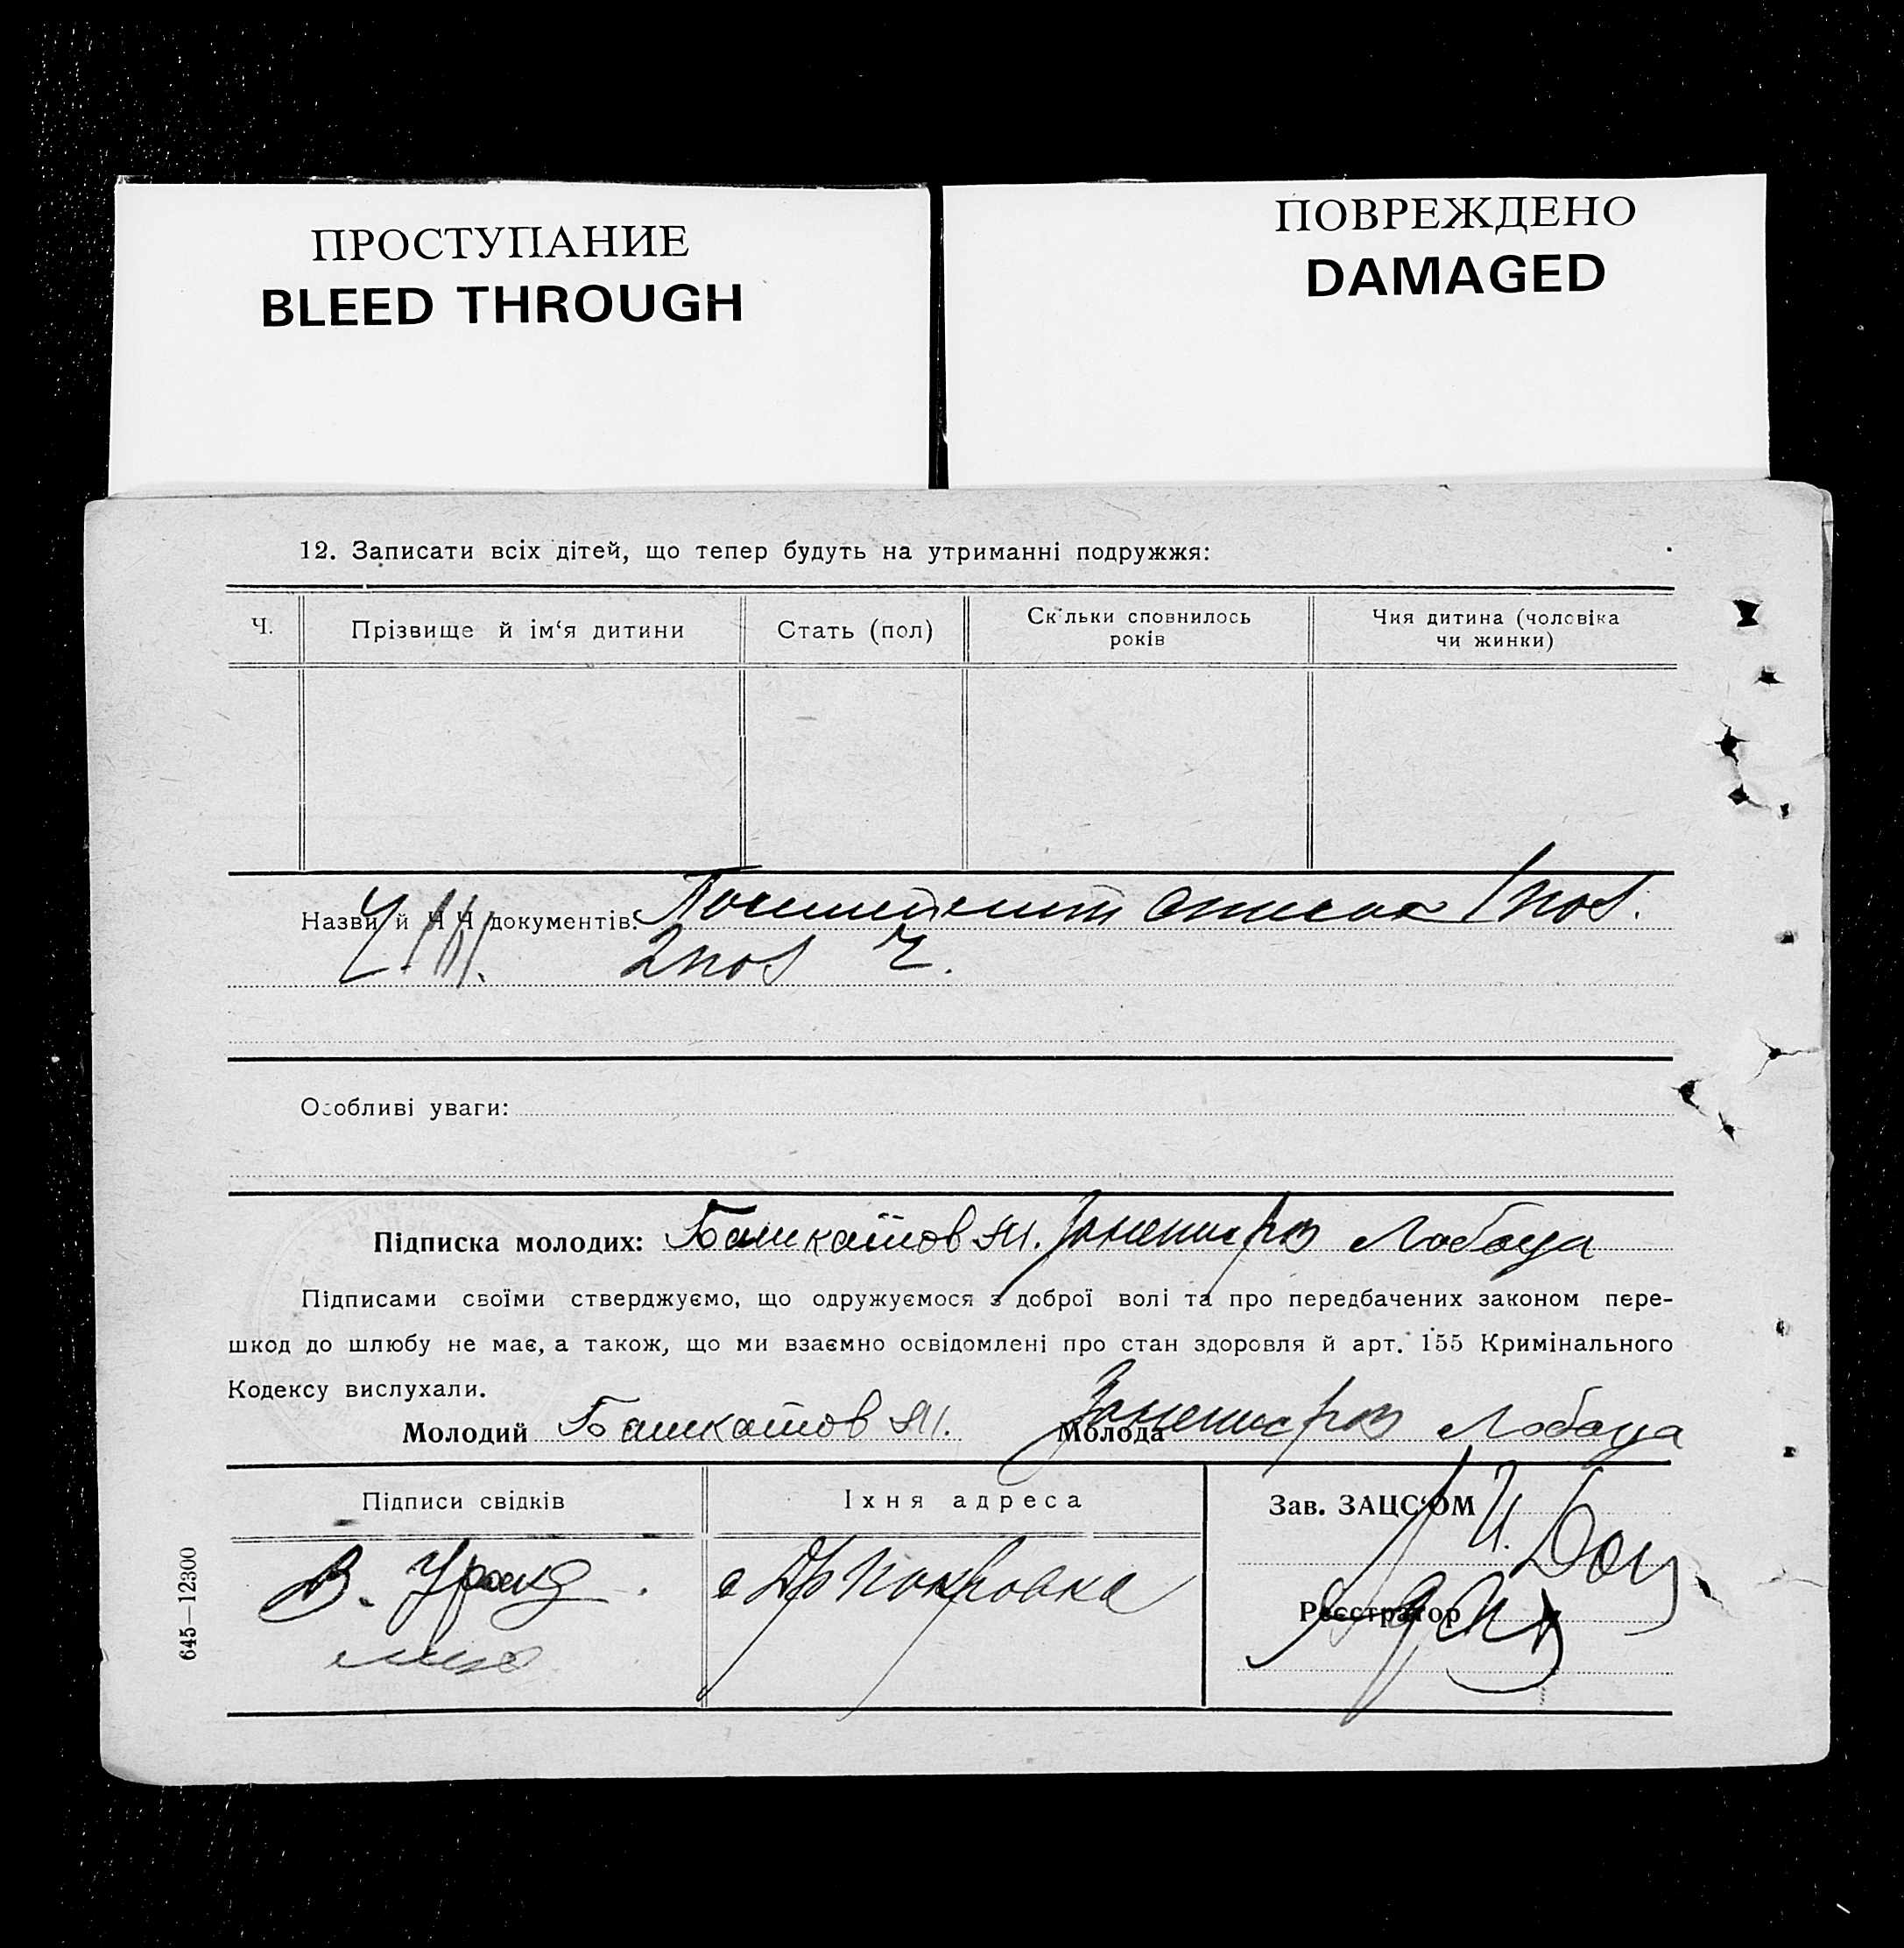 ПРОСТУПАНИЕ
BLEED THROUGH
ПОВРЕЖДЕНО
DAMAGED
12. Записати всіх дітей, що тепер будуть на утриманні подружжя:
Ч.
Прізвище й ім‘я дитини
Стать (пол)
Скільки сповнилось
років
Чия дитина (чоловіка
чи жинки)
Назви й Ч Ч документів:
Особливі уваги:
Підписка молодих: Башкатов Лобода
Підписами своїми стверджуємо, що одружуємося з доброї волі та про передбачених законом пере-
шкод до шлюбу не має, а також, що ми взаємно освідомлені про стан здоровля й арт. 155 Кримінального
Кодексу вислухали.
Молодий Башкатов Молода Лобода
Підписи свідків
Їхня адреса
Зав. ЗАЦС‘ОМ
В.
Реєстратор
645—12300